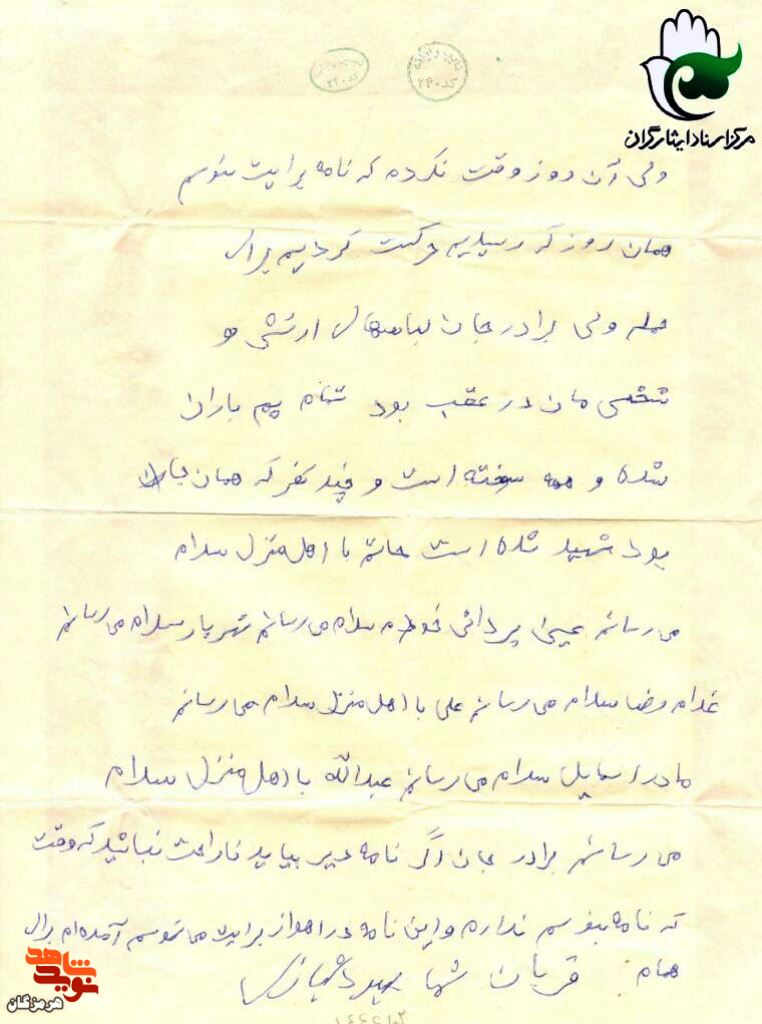 مرکز اسناد ایثارگران
ولی آن روز وقت نکرده که نامه برایت بنوسم
همان روز که رسیدیم حرکت کردیم برای
حمله ولی برادر جان لباسهای ارتشی و
شخصی مان در عقب بود تمام بم باران
شده و همه سخته است و چند نفر که همان جا
بود شهید شده است حاتم با اهل منزل سلام
می رسانم عیسی پردائی سلام می رسانم شهریار سلام می رسانم
غلام رضا سلام می رسانم علی با اهل منزل سلام می رسانم
مادر اسمایل سلام می رسانم عبدالله با اهل منزل سلام
می رسانم برادر جان اگر نامه دیر بیاید ناراحت نباشید که وقت
که نامه بنوسم ندارم و این نامه در اهواز برایت می نوسم آمده ام برای
حمام قربان شما
نوید شاهد
هرمزگان